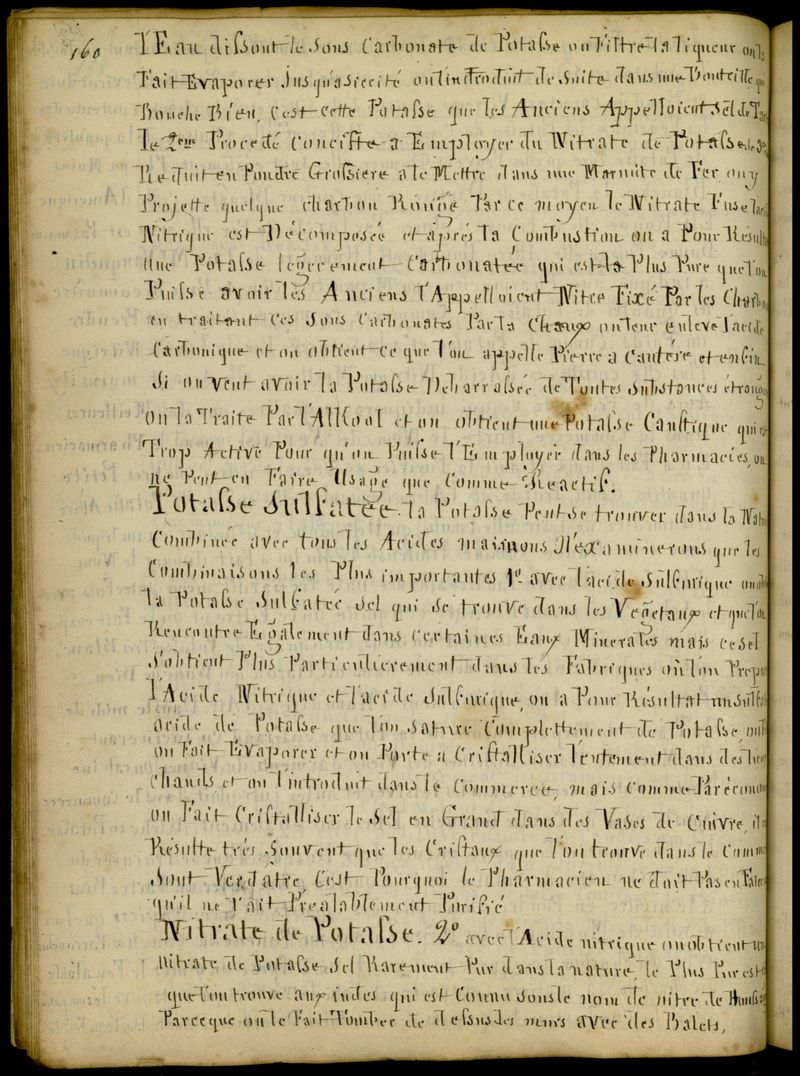 160
l'Eau dissout le sous Carbonate de Potasse on Filtre la liqueur on la
Fait Evaporer Jusqu'a siccité on l'introduit de suite dans une Bouteille qui
Bouche Bien, c'est cette Potasse que les Anciens Appelloient Sel de
le 2eme Procedé Consiste a Employer du Nitrate de Potasse
Reduit en Poudre Grossiere a le Mettre dans une Marmite de Fer on y
Projette quelque charbon Rouge Par ce moyen le Nitrate Fuse
Nitrique est Décomposée et aprés la Combustion on a Pour Résult
une Potasse legerement Carbonatée qui est la Plus Pure que l'on
Puisse avoir les Anciens l'Appelloient Nitre Fixé Par les Charbon
en traitant ces sous Carbonates Par la Chaux on leur enleve l'acide
Carbonique et on obtient ce que l'on appelle Pierre a Cautére et enfin
si on veut avoir la Potasse Debarrassée de Toutes substances étrang
on la Traite Par l'Alkool et on obtient une Potasse Caustique qui est
Trop Active Pour qu'on Puisse l'Employer dans les Pharmacies, on
ne Peut en Faire Usage que Comme Reactif.
Potasse Sulfatée. la Potasse Peut se trouver dans la Natu
Combinée avec tous les Acides mais nous N'examinerons que les
Combinaisons les Plus importantes 1o avec l'acide Sulfurique
la Potasse Sulfatée Sel qui se trouve dans les Vegetaux et que l'on
Rencontre Egalement dans certaines Eaux Minerales mais ce sel
s'obtient Plus Particulierement dans les Fabriques où l'on Prep
l'Acide Nitrique et l'acide Sulfurique, on a Pour Résultat un Sulf
acide de Potasse que l'on sature Complettement de Potasse
on Fait Evaporer et on Porte a Cristalliser lentement dans des lieux
chauds et on l'introduit dans le Commerce, mais Comme Par économ
on Fait Cristalliser le Sel en Grand dans des Vases de Cuivre, il
Résulte trés souvent que les Cristaux que l'on trouve dans le Comm
sont Verdâtre, C'est Pourquoi le Pharmacien ne doit Pas en Faire
qu'il ne l'ait Préalablement Purifié
Nitrate de Potasse. 2o avec l'Acide nitrique on obtient un
Nitrate de Potasse Sel Rarement Pur dans la nature, le Plus Pur est
que l'on trouve aux indes qui est Connu sous le nom de nitre de Houssa
Parceque on le Fait Tomber de dessus les murs avec des Balets,